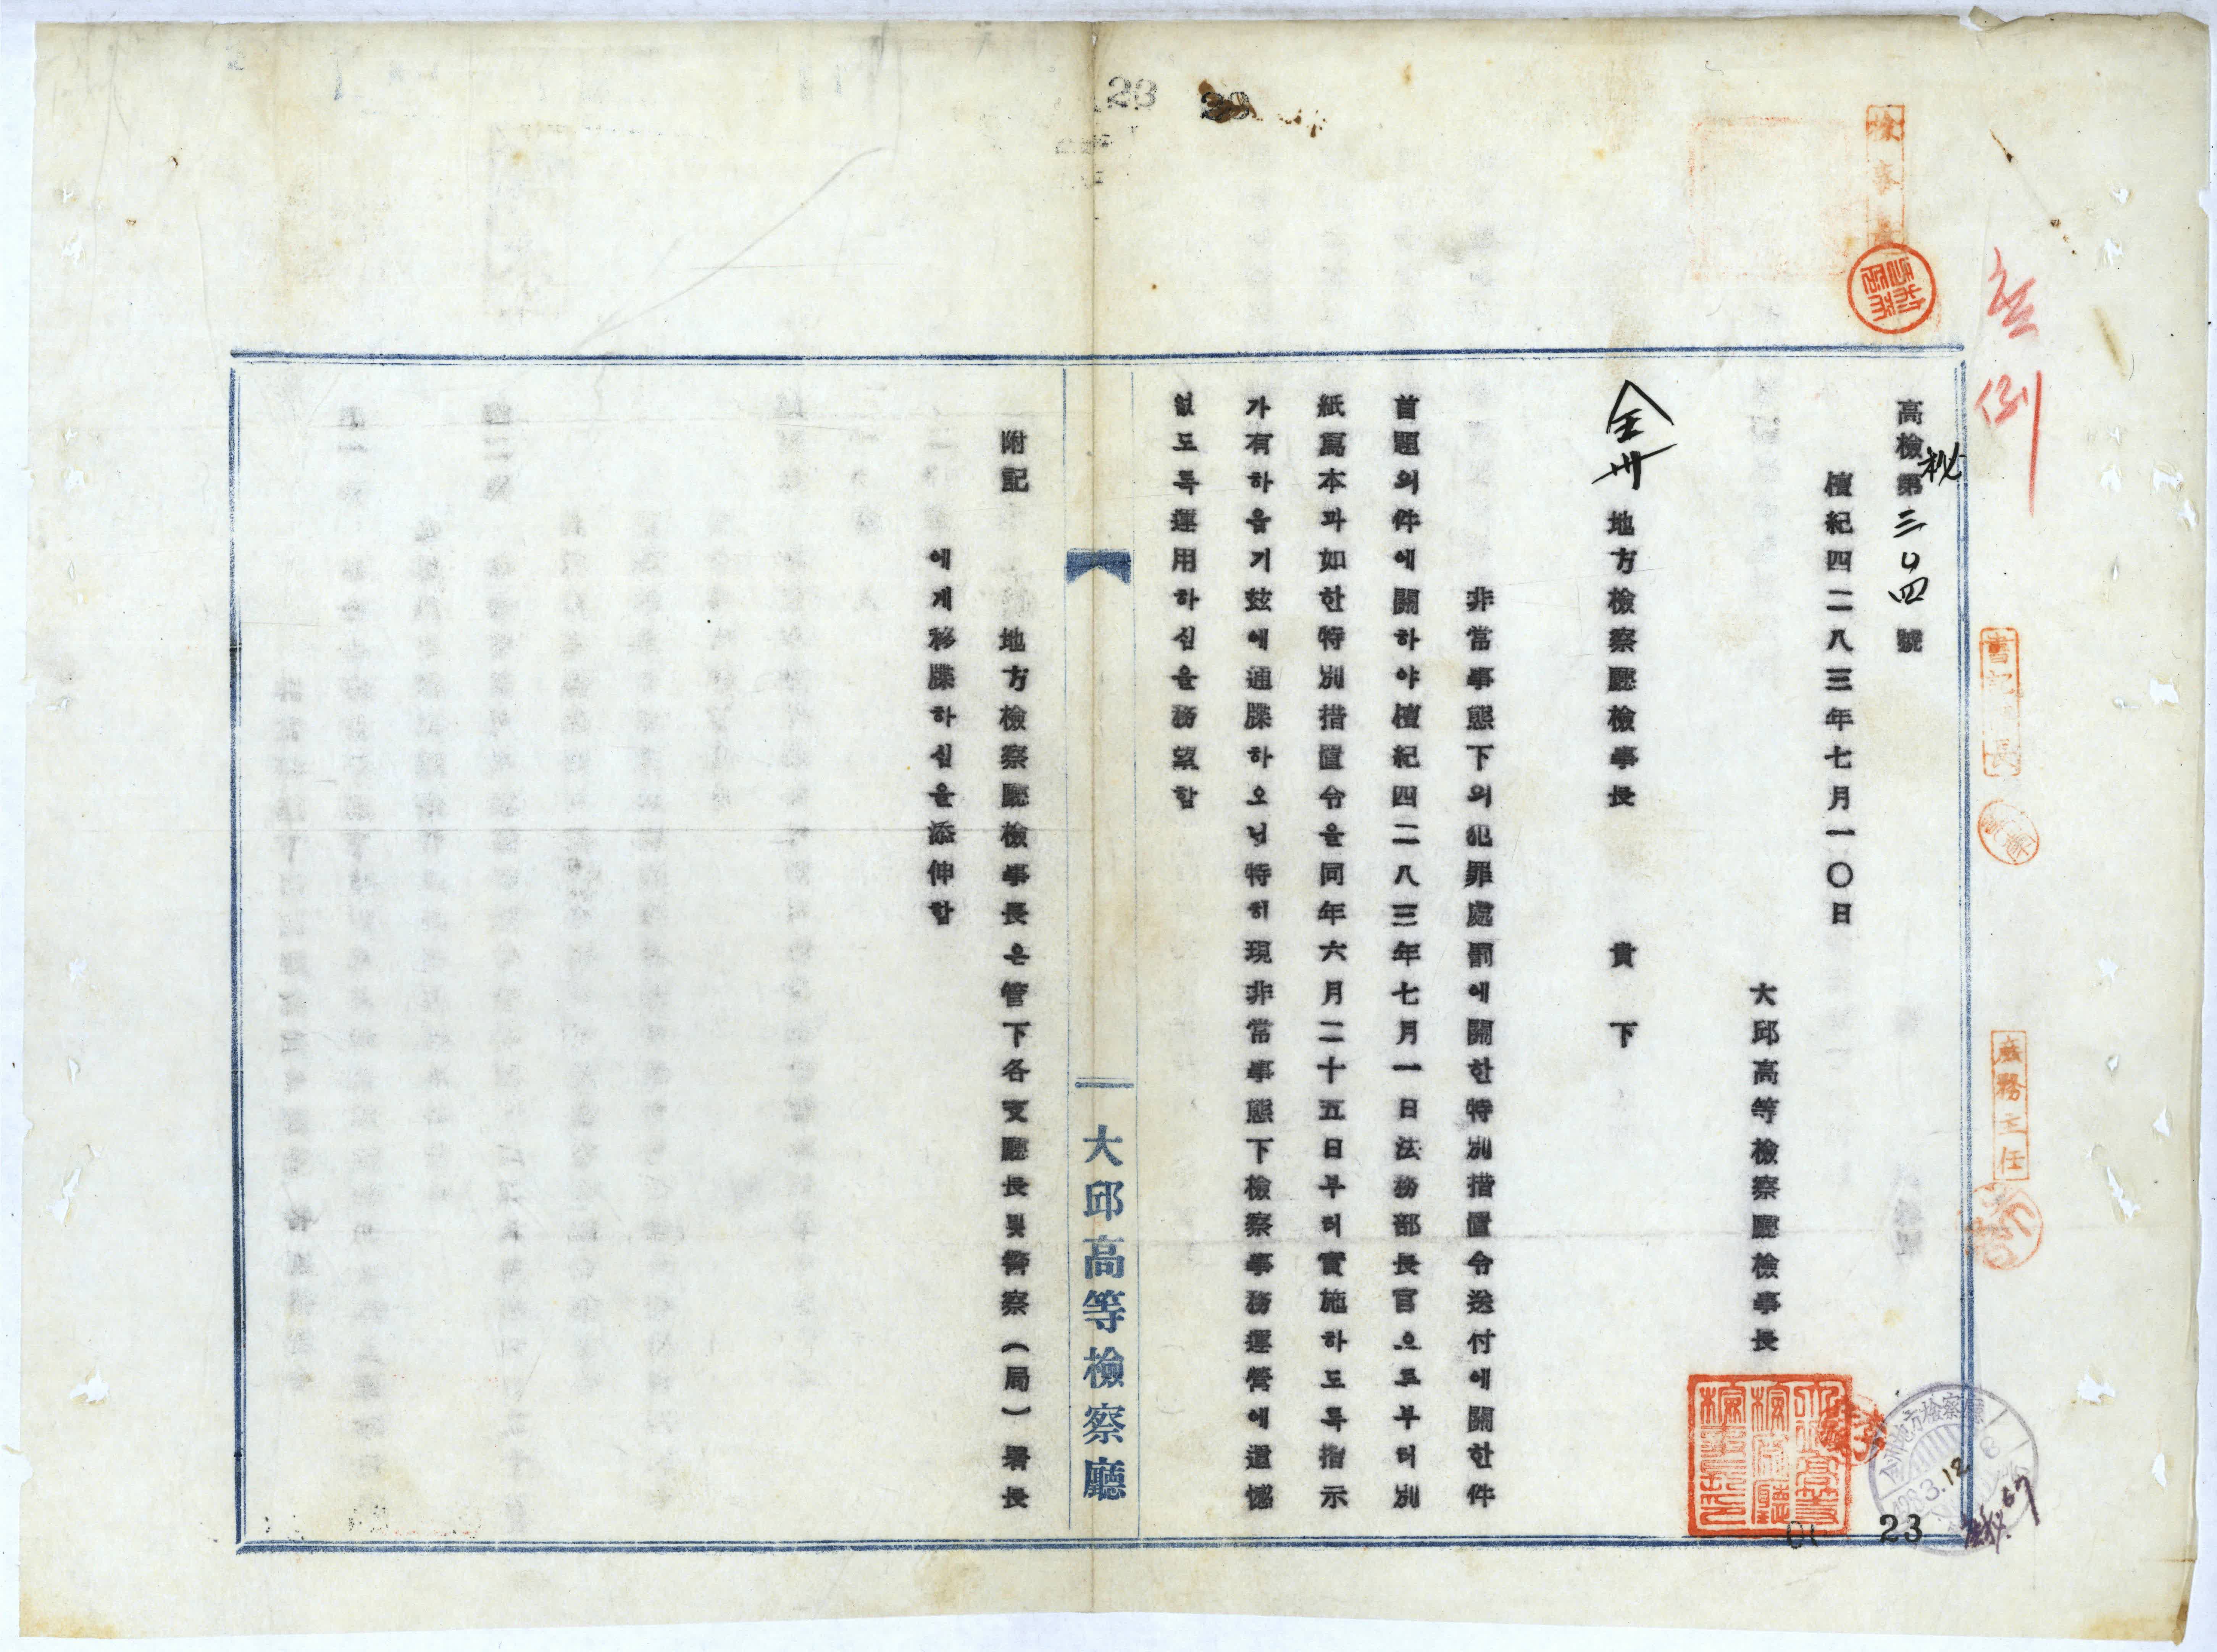 高檢秘第三四號
檀紀四二八三年七月一〇日
大邱高等檢察廳檢事長
全州地方檢察廳檢事長 貴下
非常事態下의犯罪處罰에關한特別措置令送付에關한件
首題의件에關하야檀紀四二八三年七月一日法務部長官으로부터別
紙寫本과如한特別措置令을同年六月二十五日부터實施하도록指示
가有하옵기玆에通牒하오니特히現非常事態下檢察事務運營에遺憾
없도록運用하심을務望함
大邱高等檢察廳
附記 地方檢察廳檢事長은管下各支廳長및警察(局)署長
에게移牒하심을添伸함
例
書記長
庶務主任
23
23